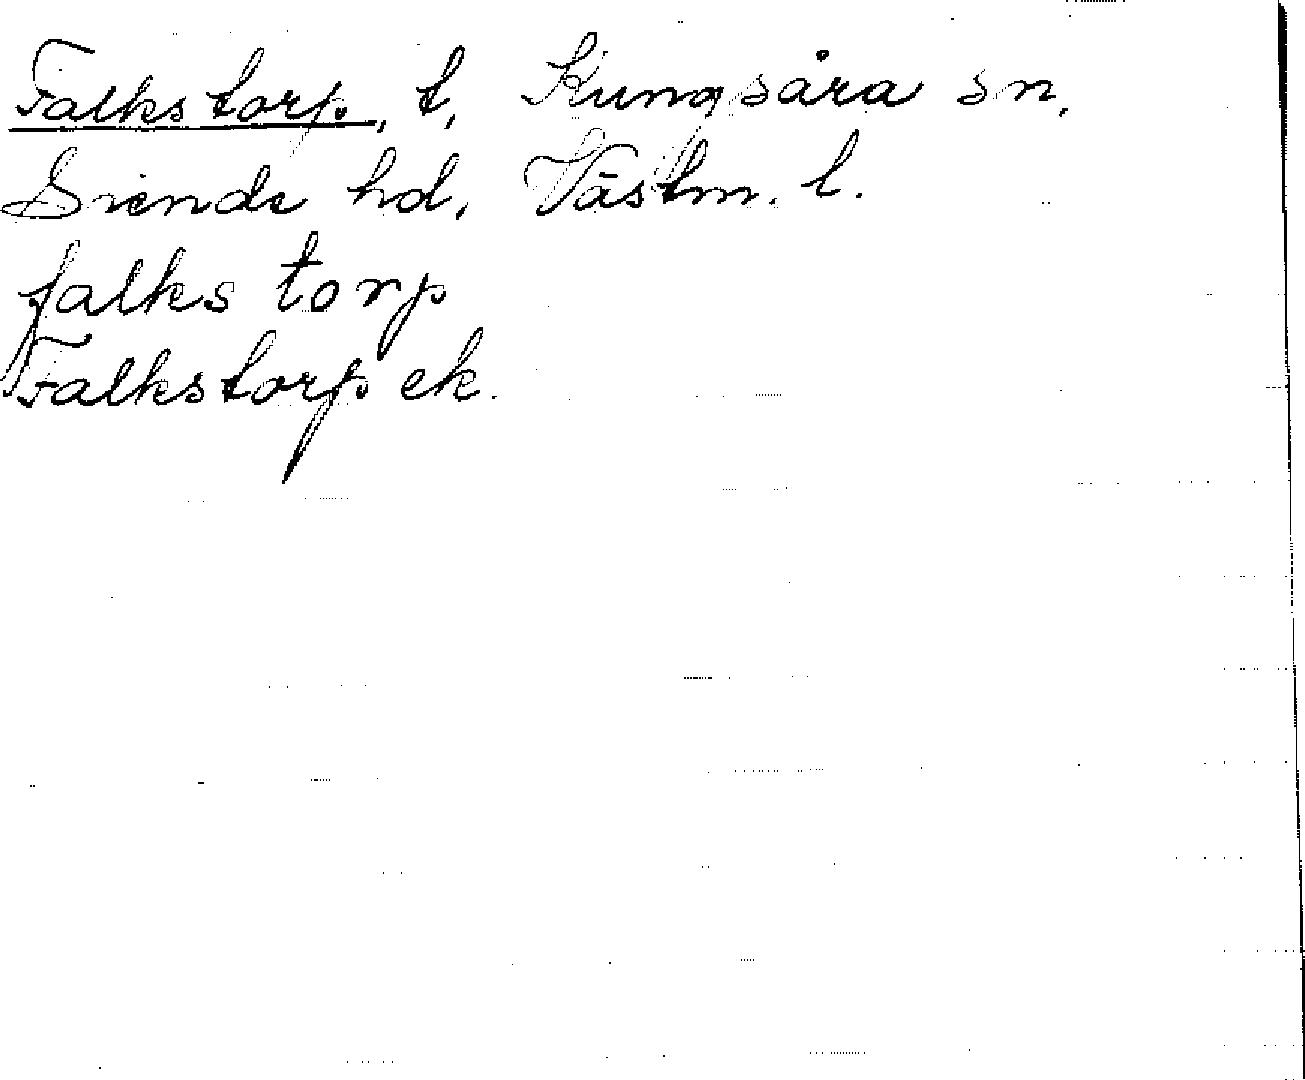 Falkstorp, t, Kungsåra sn,
Siende hd, Västm. l.
falks torp
Falkstorp ek.